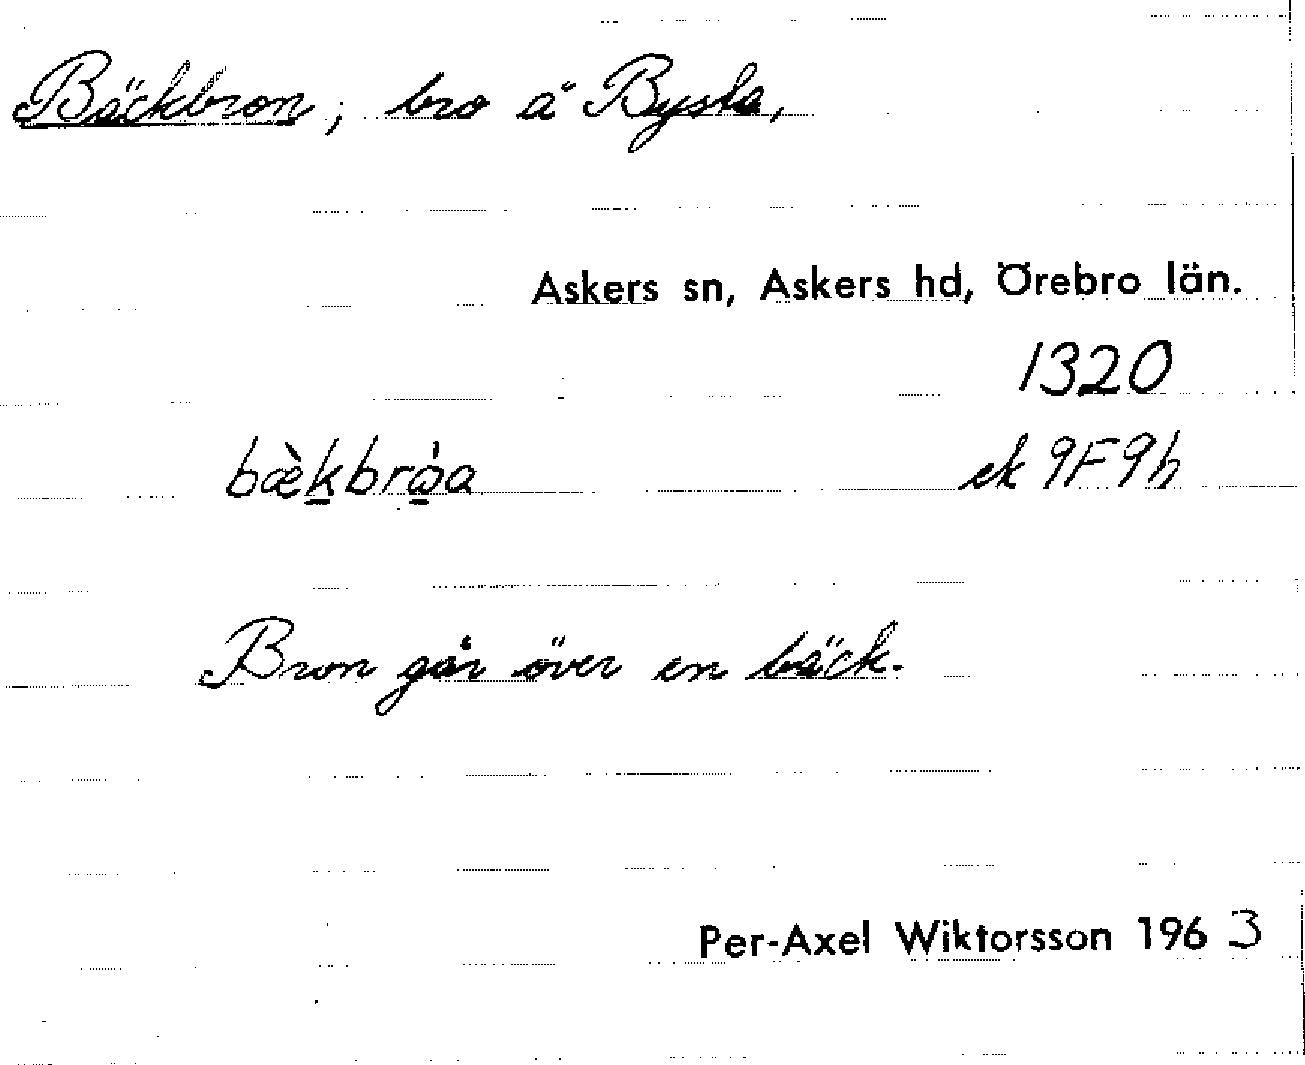 Bäckbron, bro å Bysta,
Askers sn, Askers hd, Örebro län.
1320
bæ̀kbrὼa ek 9F9h
Bron går över en bäck.
Per-Axel Wiktorsson 1963